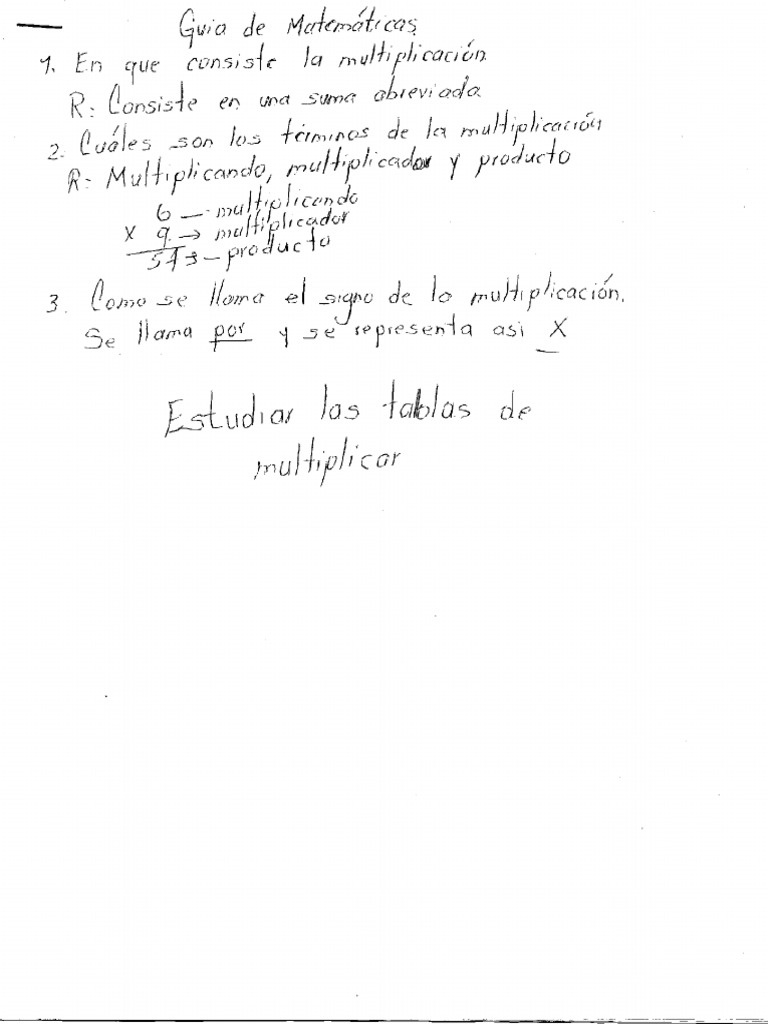 Guia de Matemáticas
1. En que consiste la multiplicación.
R: Consiste en una suma abreviada
2. Cuáles son los términos de la multiplicación
R- Multiplicando, multiplicador y producto
6 — multiplicando
x 9 → multiplicador
54 → producto
3. Como se llama el signo de la multiplicación.
Se llama por y se representa asi X
Estudiar las tablas de
multiplicar